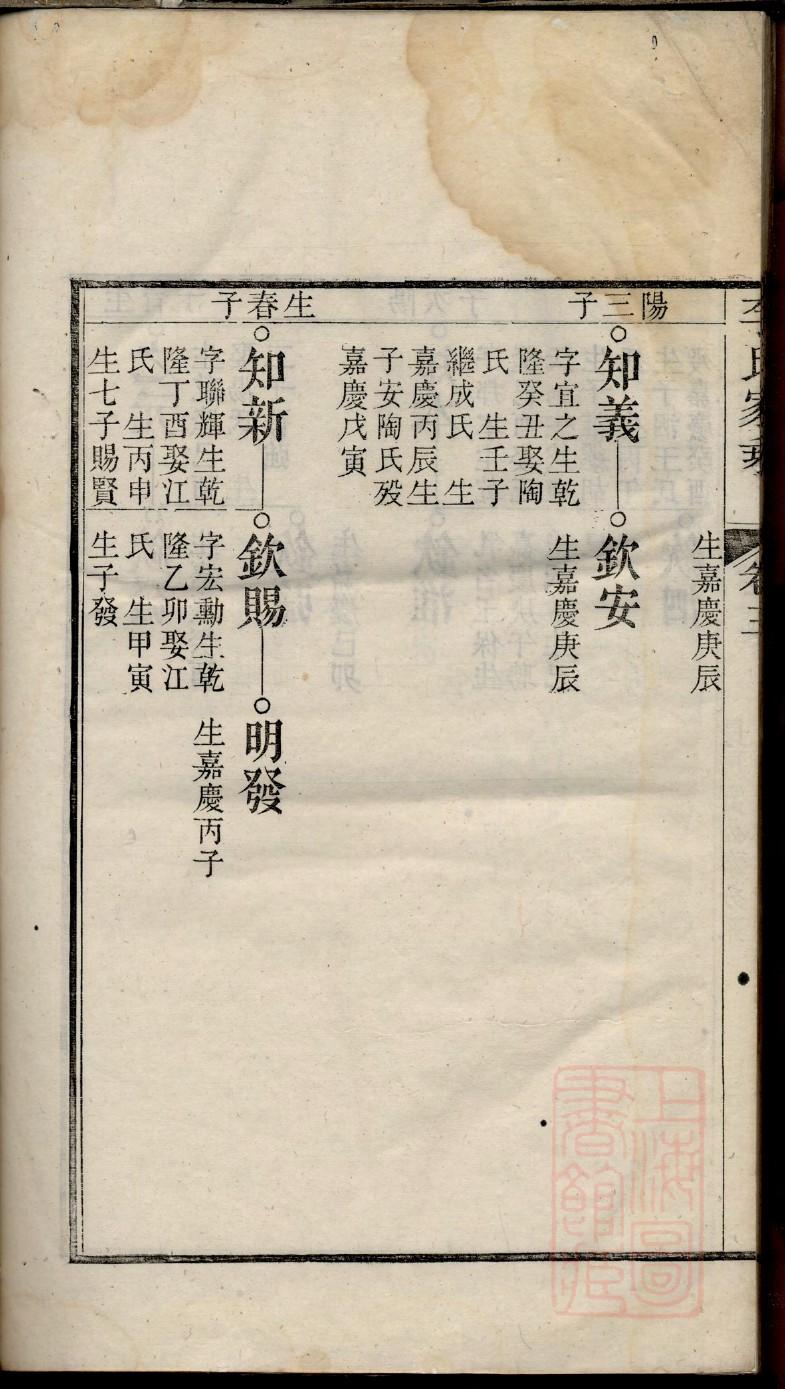 李氏家乘
卷三
生嘉慶庚辰
陽三子
知義
字宜之生乾
隆癸丑娶陶
氏 生壬子
繼成氏 生
嘉慶丙辰生
子安陶氏歿
嘉慶戊寅
欽安
生嘉慶庚辰
生春子
知新
字聯輝生乾
隆丁酉娶江
氏 生丙申
生七子賜賢
欽賜
字宏勳生乾
隆乙卯娶江
氏 生甲寅
生子發
明發
生嘉慶丙子
上海圖
書館藏